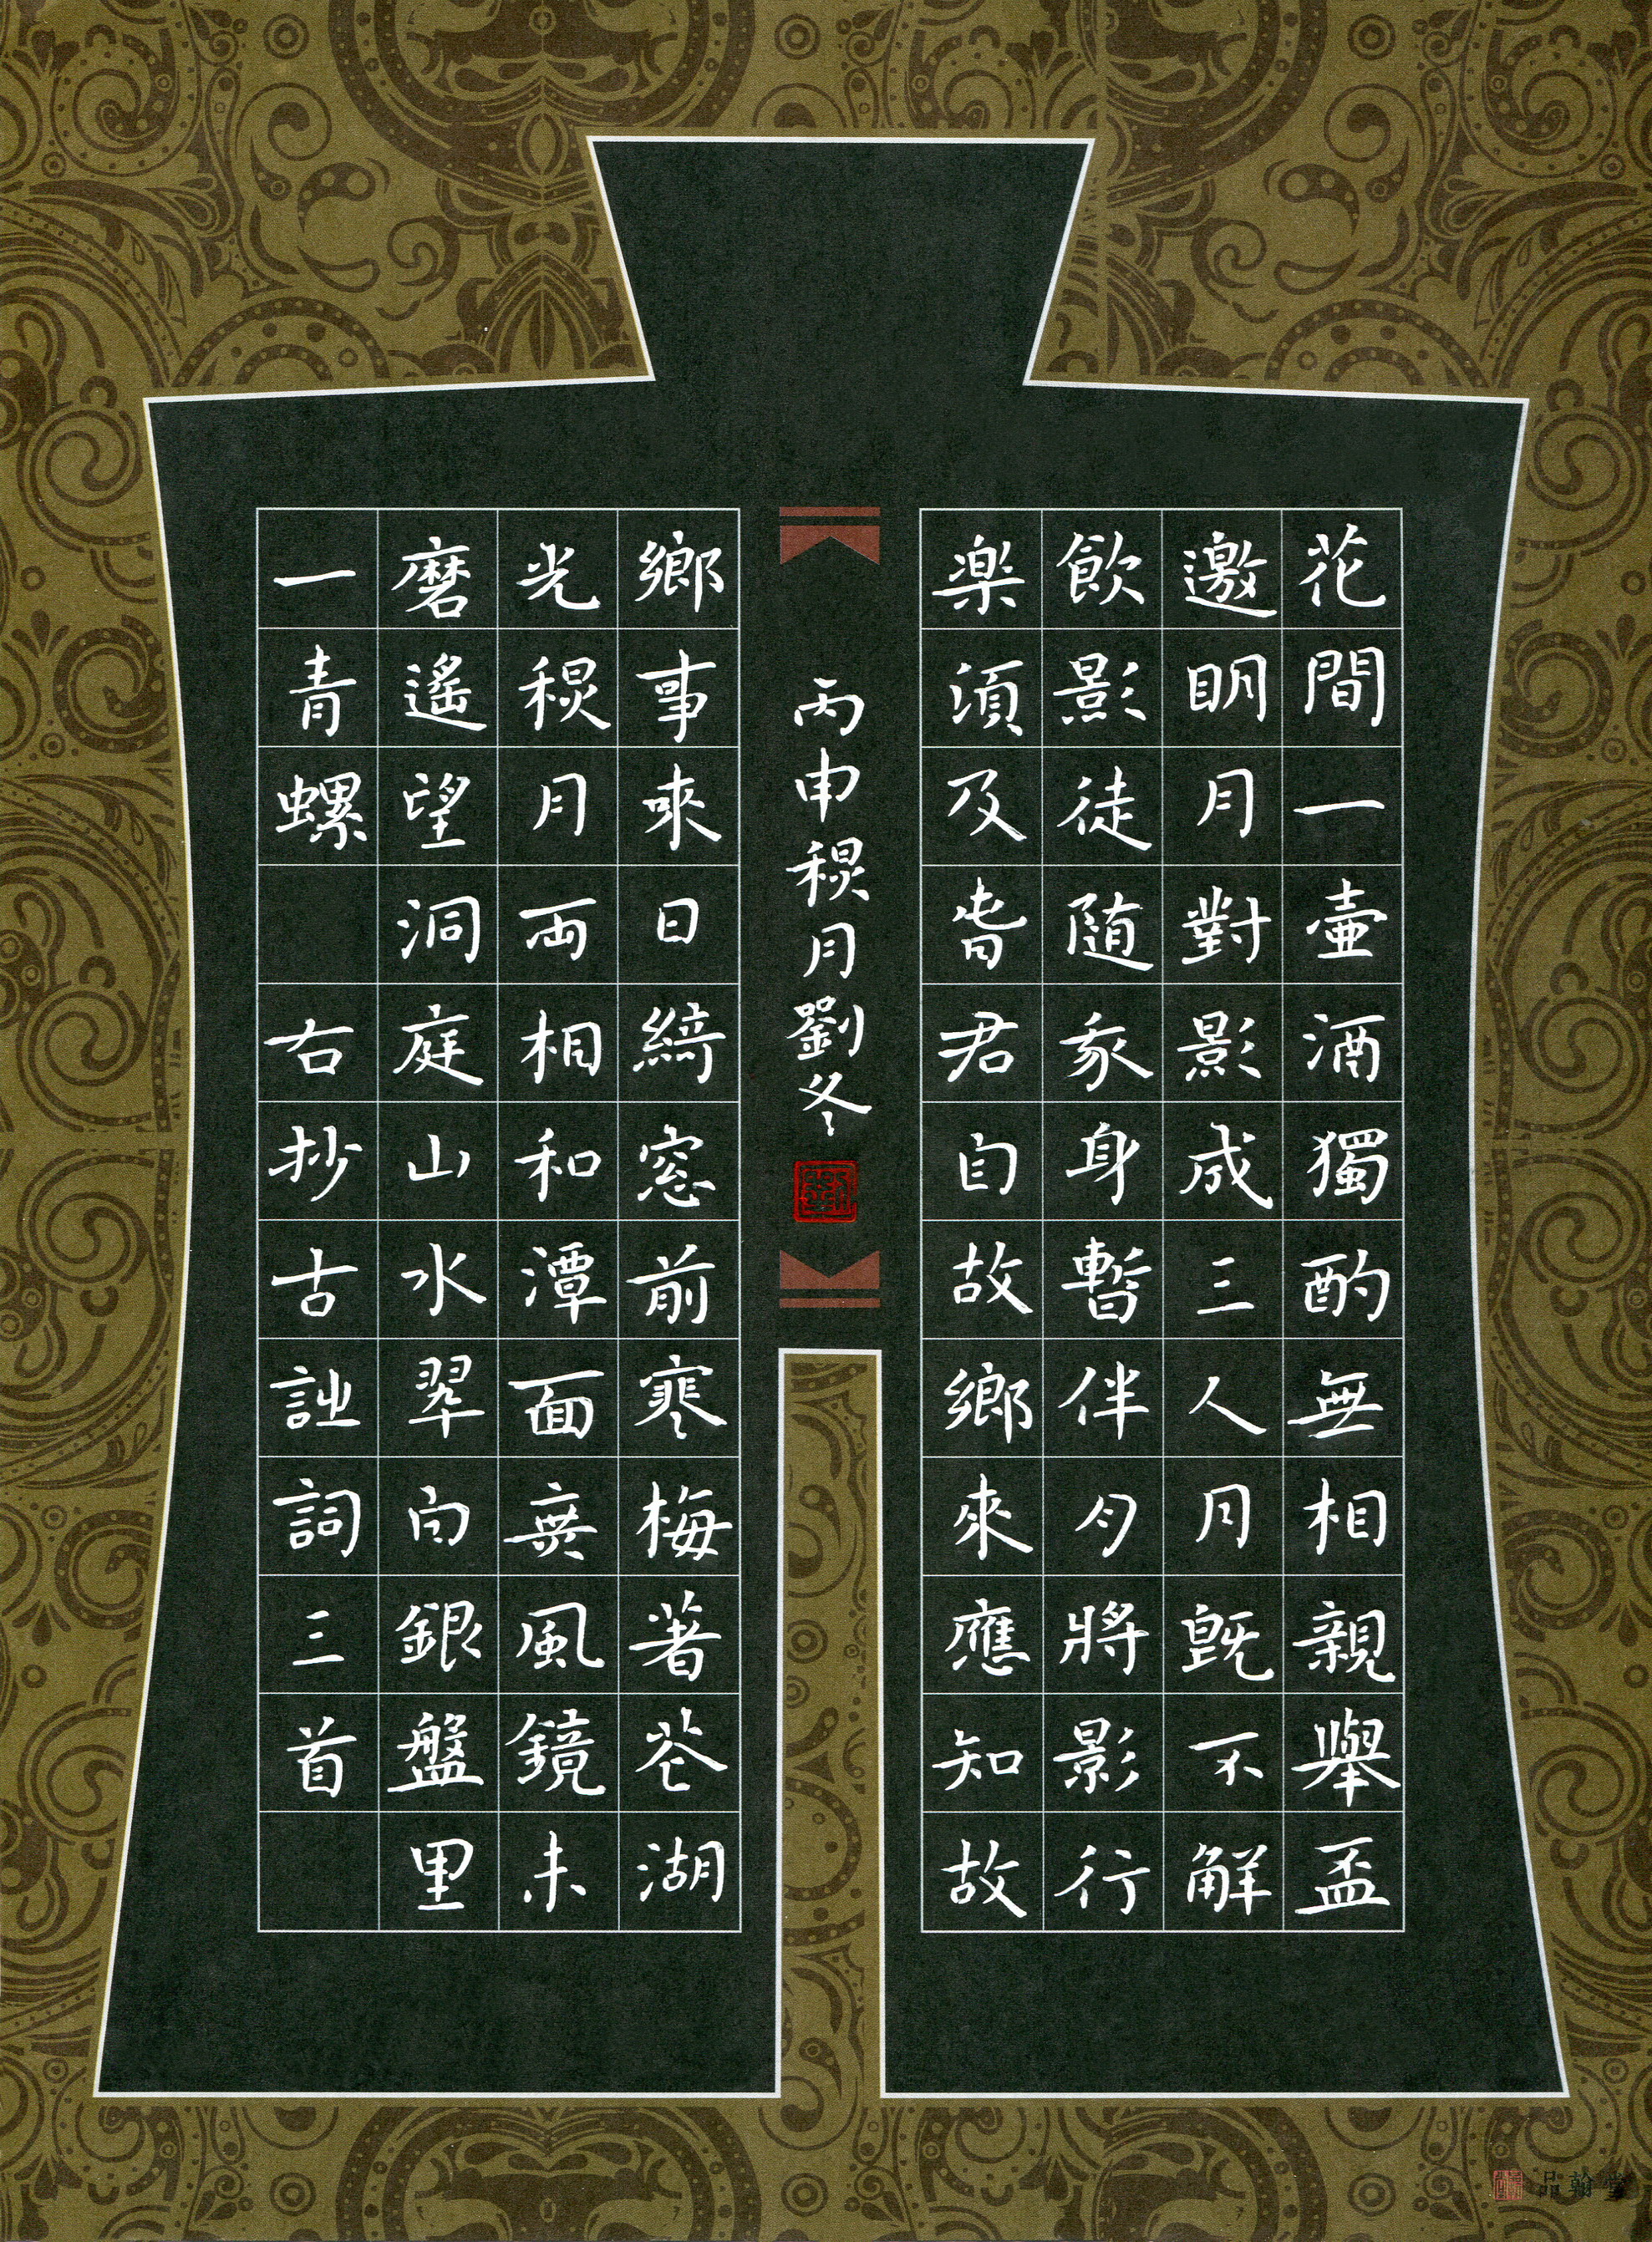 花間一壷酒獨酌無相親舉盃
邀明月對影成三人月既不解
飲影徒随我身暫伴月將影行
楽須及春君自故鄉來應知故
鄉事來日綺窓前寒梅著花湖
光秌月両相和潭面無風鏡未
磨遙望洞庭山水翠白銀盤里
一青螺 右抄古詩詞三首
丙申秌月劉冬
品翰堂